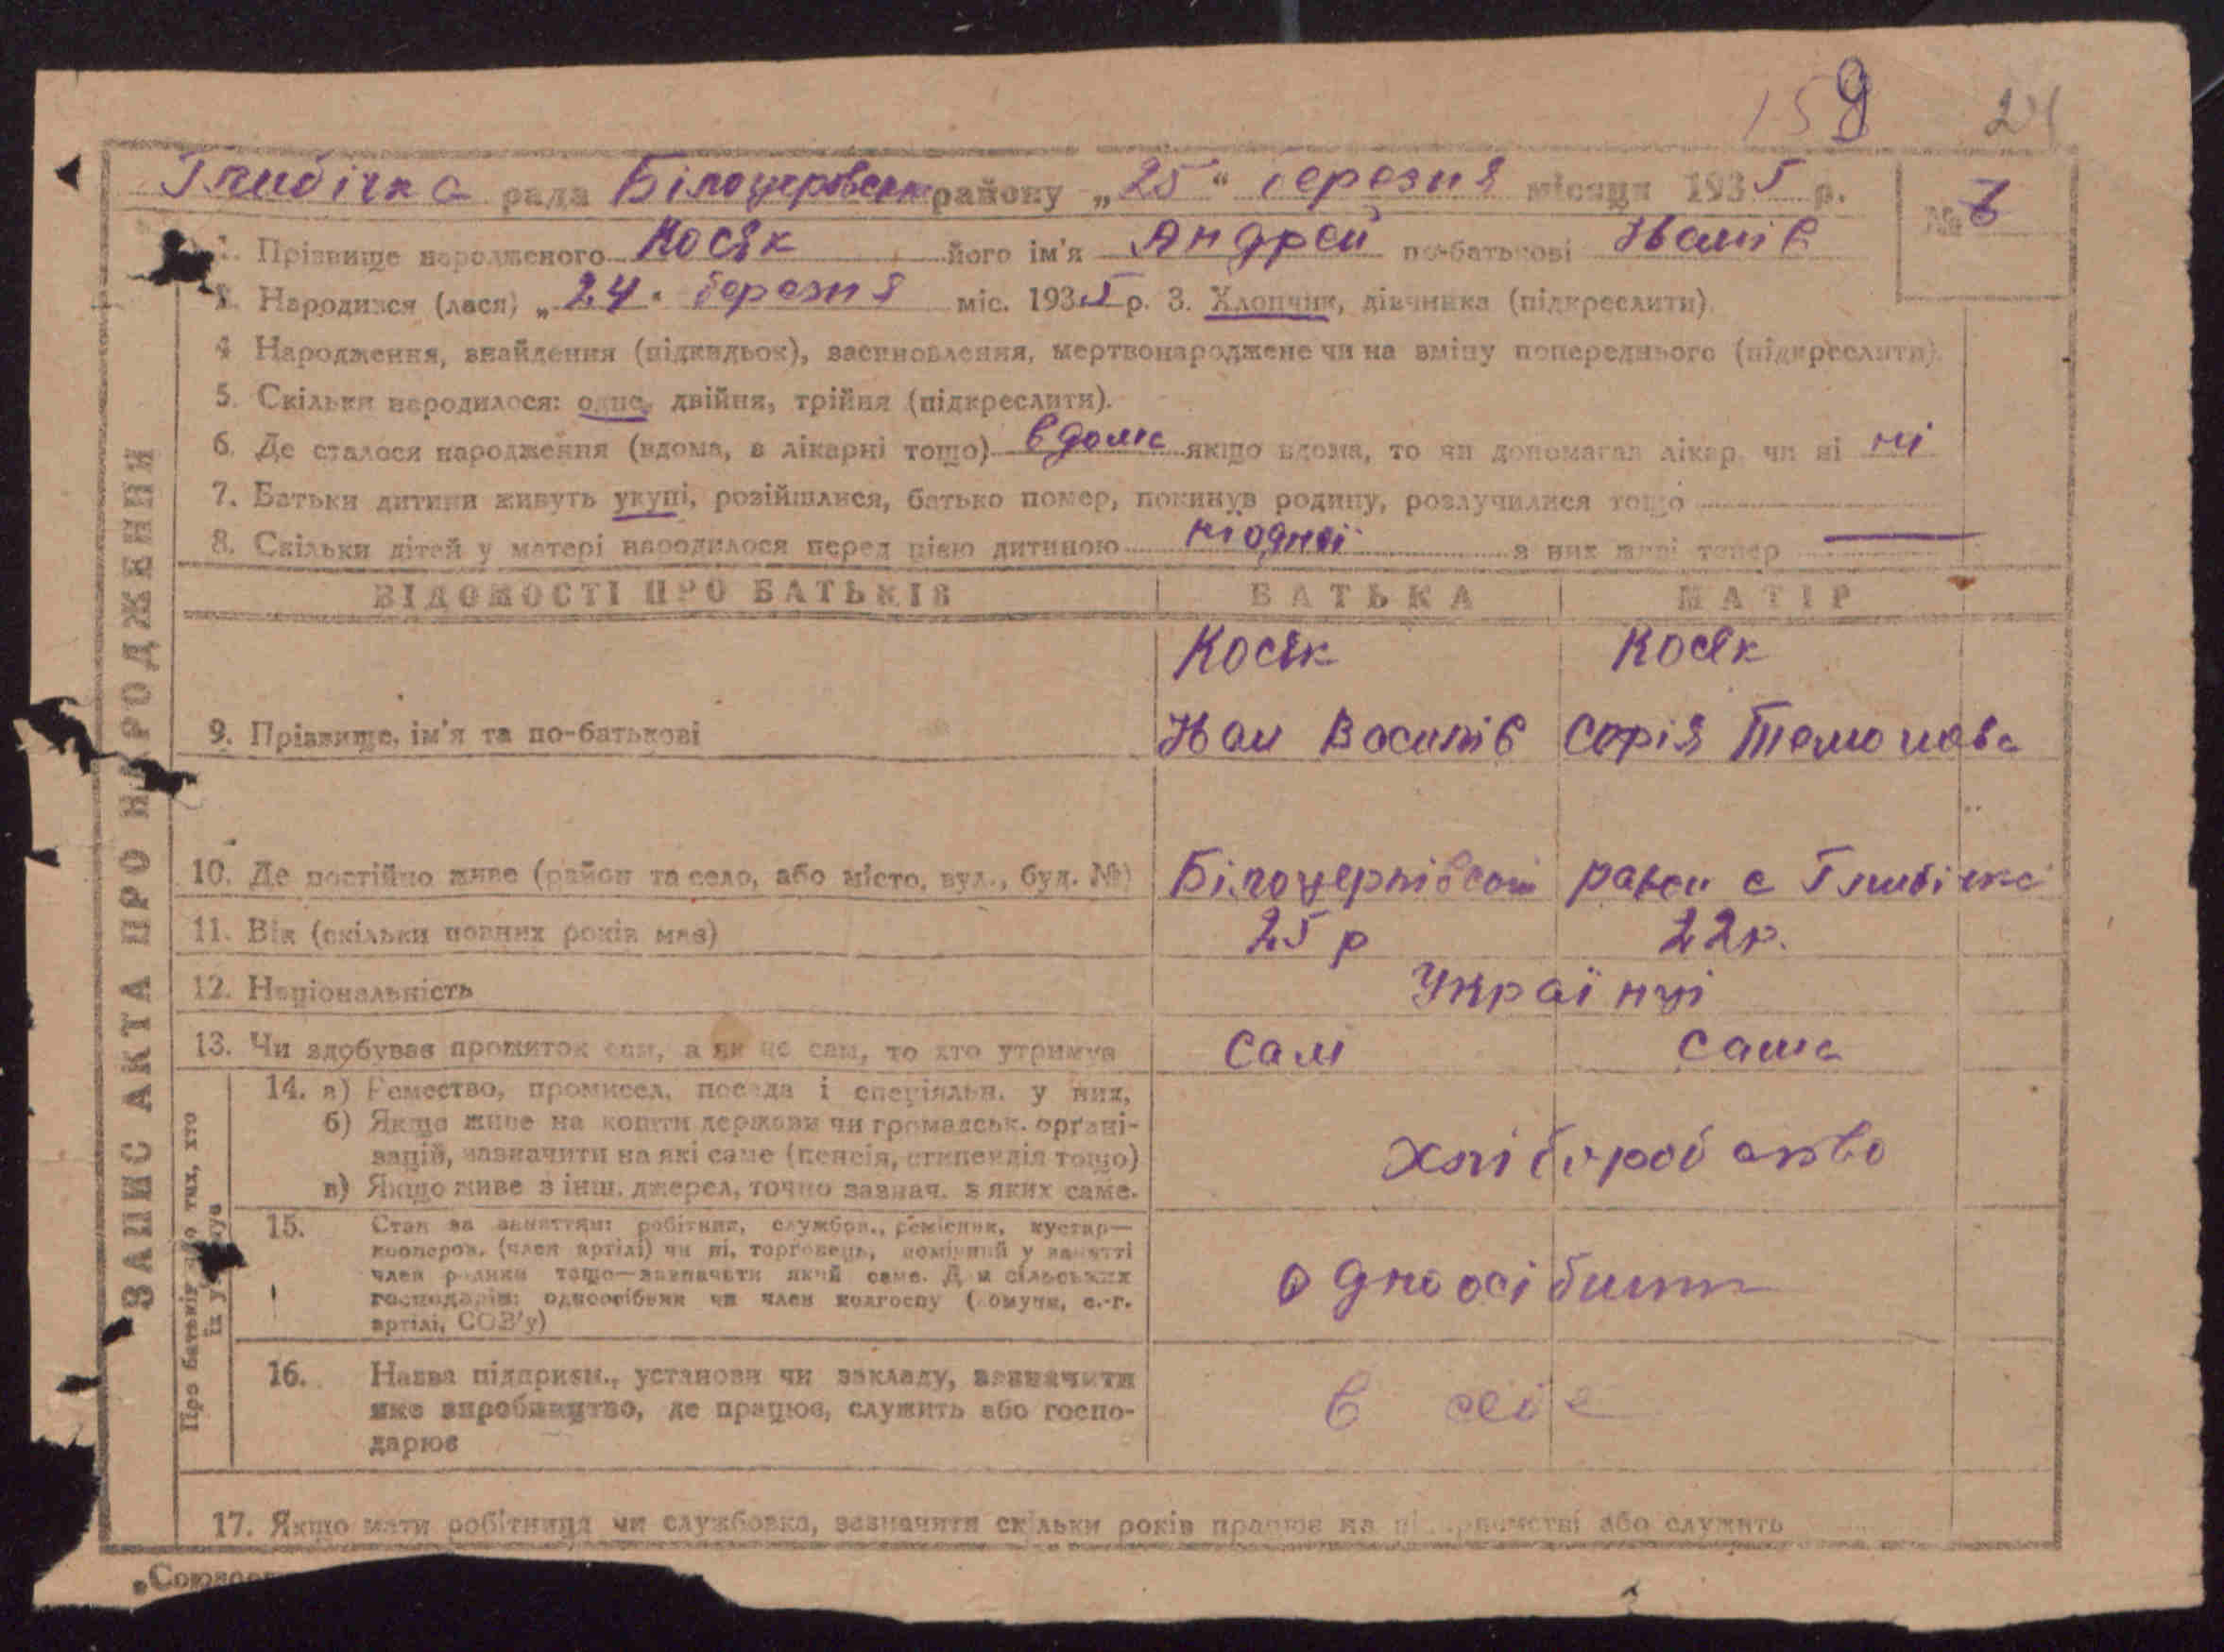 159 24
Глибічка рада Білоцерковськ району „25“ березня місяця 1935 р.
№
1. Прізвище народженого Косяк його ім'я Андрей по-батькові Иванів
2. Народився (лася) „24“ березня міс. 1935 р. 3. Хлопчик, дівчинка (підкреслити).
4 Народження, знайдення (підкидьок), засиновлення, мертвонароджене чи на зміну попереднього (підкреслити).
5. Скільки народилося: одне, двійня, трійня (підкреслити).
6. Де сталося народження (вдома, в лікарні тощо) вдома якщо вдома, то чи допомагав лікар, чи ні ні
7. Батьки дитини живуть укупі, розійшлися, батько помер, покинув родину, розлучилися тощо
8. Скільки дітей у матері народилося перед цією дитиною ніодної з них живі тепер —
ВІДОМОСТІ ПРО БАТЬКІВ БАТЬКА МАТІР
Косяк Косяк
9. Прізвище, ім'я та по-батькові Иван Василів Софія
10. Де постійно живе (район та село, або місто, вул., буд. №) Білоцерківськ с Глибічка
11. Вік (скільки повних років має) 25 р 22 р.
12. Національність Українці
13. Чи здобуває прожиток сам, а як не сам, то хто утримує сам сама
14. а) Ремество, промисел, посада і спеціяльн. у них,
б) Якщо живе на кошти держави чи громадськ. орґані-
зацій, зазначити на які саме (пенсія, стипендія тощо)
в) Якщо живе з інш. джерел, точно зазнач. з яких саме.
хліборобство
15. Стан за заняттям: робітник, службов., ремісник, кустар—
кооперов. (член артілі) чи ні, торговець, помічний у занятті
член родини тощо—зазначити який саме. Для сільських
господарів: одноосібник чи член колгоспу (комуни, с.-г.
артілі, СОЗ'у)
одноосібники
16. Назва підприєм., установи чи закладу, зазначити
яке виробництво, де працює, служить або госпо-
дарює
в себе
17. Якщо мати робітниця чи службовка, зазначити скільки років працює на підприємстві або служить
ЗАПИС АКТА ПРО НАРОДЖЕННЯ
Про батьків або тих, хто
їх утримує